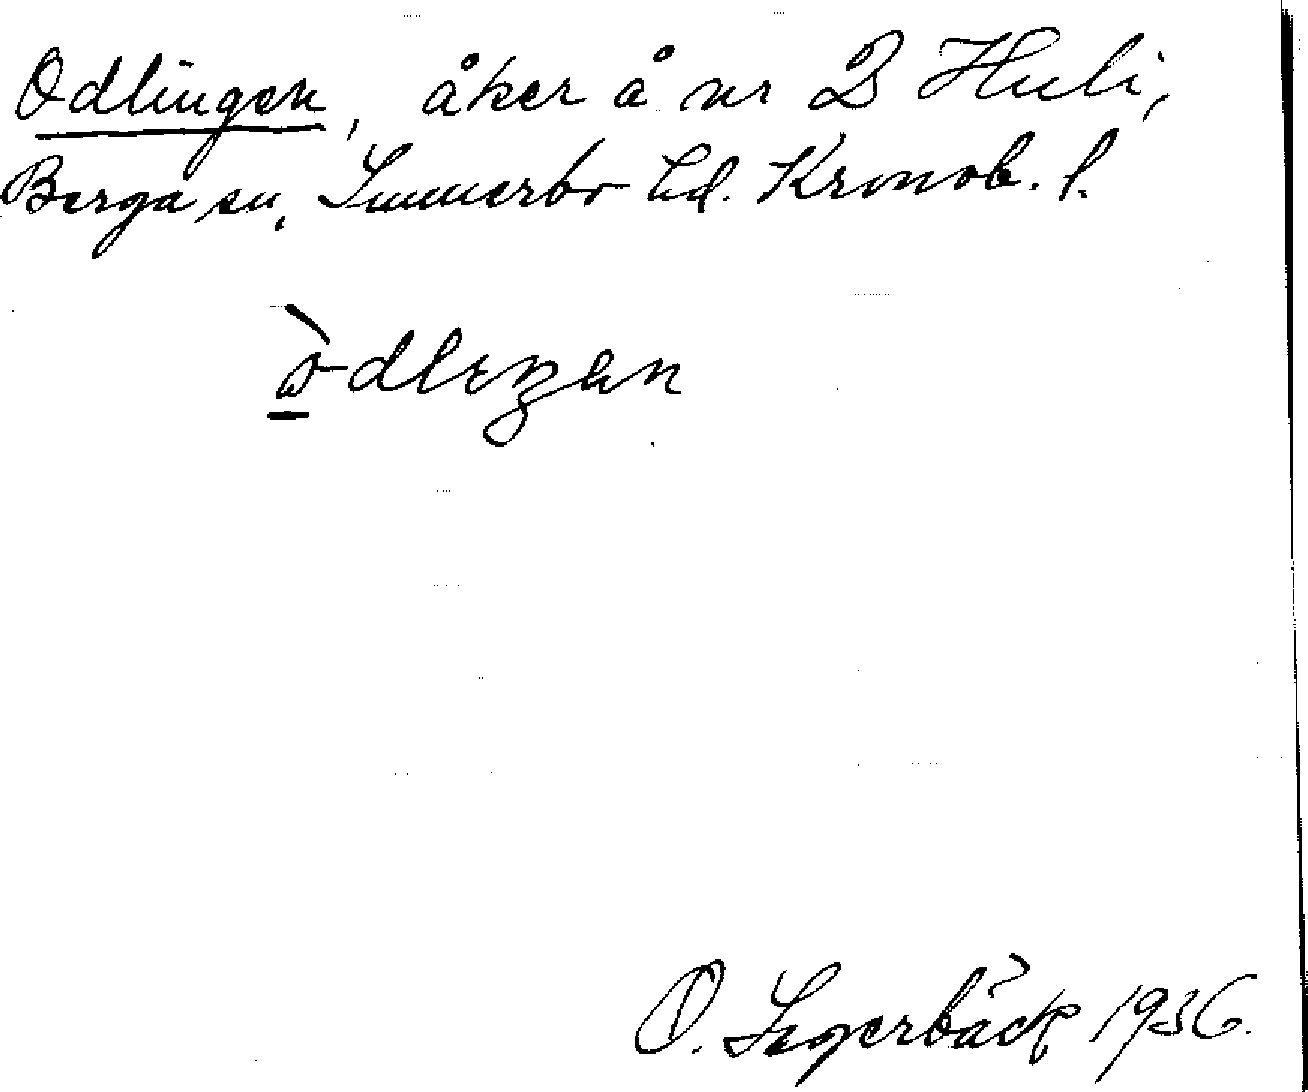 Odlingen, åker å nr 2 Huli,
Berga sn, Sunnerbo hd. Kronob. l.
òdlıŋən
O. Lagerbäck 1936.